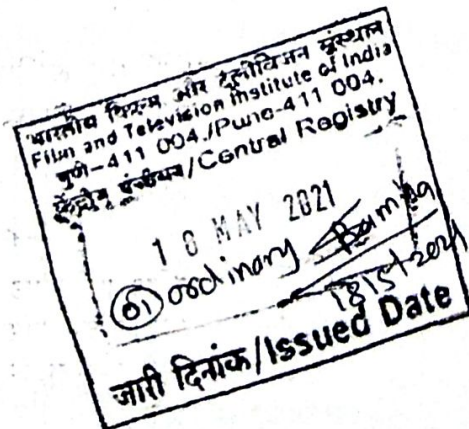 भारतीय फिल्म और टेलीविजन संस्थान
Film and Television Institute of India
पुणे-411 004./Pune-411 004.
केन्द्रीय पंजीयन/Central Registry
18 MAY 2021
01 ordinary
18/5/2021
जारी दिनांक/Issued Date